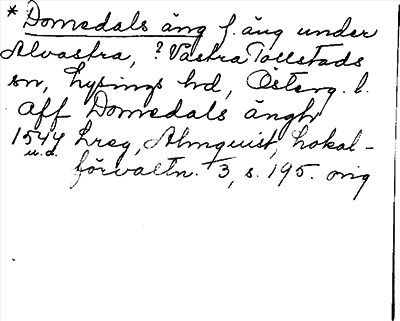 * Domedals äng f. äng under
Alvastra, ? Västra Tollstads
sn, Lysings hd, Österg. l.
aff Domedals ängh
1544 hreg, Almquist, Lokal-
u.d.
förvaltn. 3, s. 195. orig